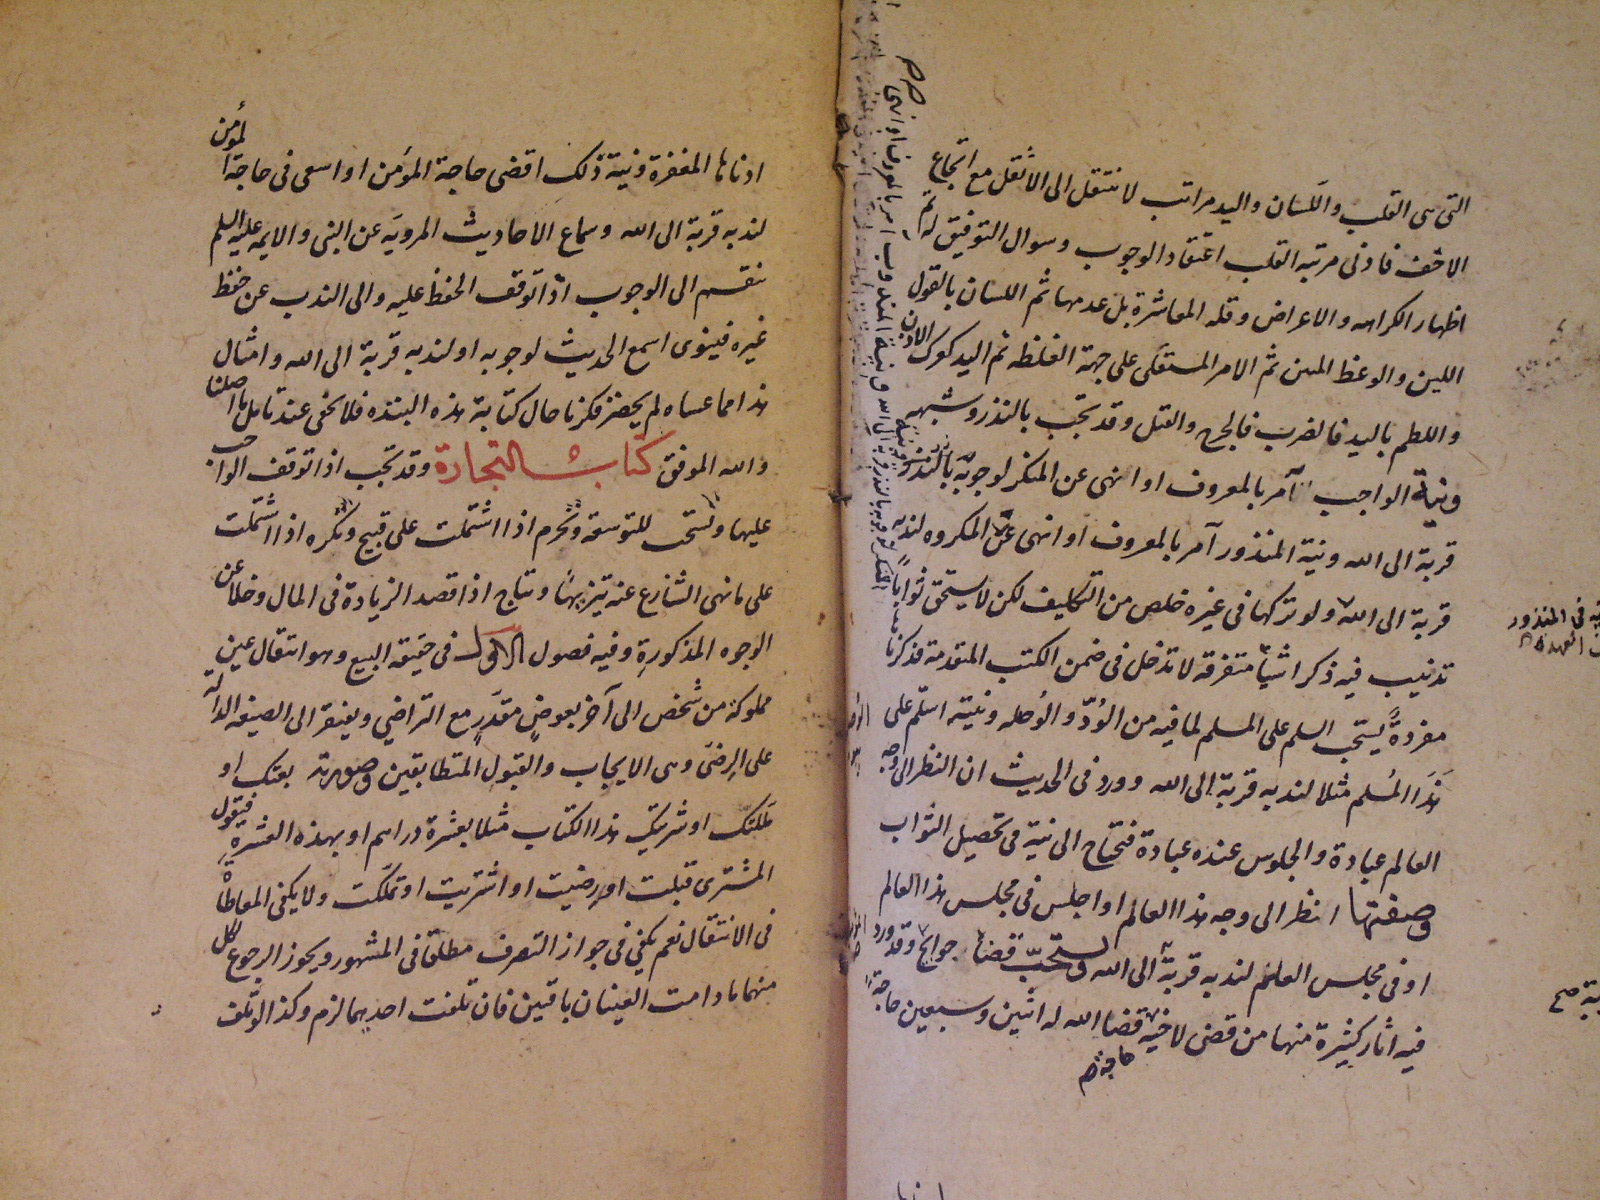 التي هي القلب واللسان واليد مراتب لا ننتقل الى الاثقل مع انجاع
الاخف فادنى مرتبه القلب اعتقاد الوجوب وسوال التوفيق له ثم
اظهار الكراهه والاعراض وقله المعاشرة بل عدمها ثم اللسان بالقول
اللين والوعظ الحسن ثم الامر المستعلى على جهة الغلظه ثم اليد كعرك الاذن
واللطم باليد فالضرب فالجرح والقتل وقد تجب بالنذر وشبهه
ونية الواجب آمر بالمعروف او انهى عن المنكر لوجوبه بالنذر
قربة الى الله ونية المنذور آمر بالمعروف او انهى عن المكروه لندبه
قربة الى الله ولو تركها فى غيره خلص من التكليف لكن لا يستحق ثوابا
تذنيب فيه ذكر اشيآ متفرقه لا تدخل فى ضمن الكتب المتقدمة فذكرنا
مفردةً يستحب السلم على المسلم لما فيه من الوُدّ والوُصله ونيته اسلّم على
هذَا المُسلم مثلا لندبه قربة الى الله وورد فى الحديث ان النظر الى وجه
العالم عبادة والجلوس عنده عبادة فتحتاج الى نية فى تحصيل الثواب
وصفتها انظر الى وجه هذا العالم او اجلس فى مجلس هذا العالم
او فى مجلس العلم لندبه قربة الى الله ويستحبّ قضا حوايج وقد ورد
فيه اثار كثيرة منها من قضى لاخيه قضا الله له اثنين وسبعين حاجة
حاجة صح
ادناها المغفرة ونية ذلك اقضى حاجة المؤمن او اسعى فى حاجة المؤمن
لندبه قربة الى الله وسماع الاحاديث المرويَه عن النبى والايمه عليه السلم
ينقسم الى الوجوب اذا توقف الحفظ عليه والى الندب عن حفظ
غيره فينوى اسمع الحديث لوجوبه او لندبه قربة الى الله وامثال
هذا مما عساه لم يحضر فكرنا حال كتابة هذه النبذه فلا يخفى عند تامل ما اصلنا
والله الموفق كتاب التجارة وقد تجب اذا توقف الواجب
عليها وتستحب للتوسعة وتحرم اذا اشتملت على قبيح وتكره اذا اشتملت
على ما نهى الشارع عنه تنزيهًا وتباح اذا قصد الزيادة فى المال وخلا عن
الوجوه المذكورةِ وفيه فصول الاول فى حقيقه البيع وهو انتقال عين
مملوكة من شخص الى آخر بعوضٍ مقدّرٍ مع التراضي ويفتقر الى الصيغه الدالة
على الرضىَ وهى الايجاب والقبول المتطابقين وصورته بعتك او
ملّكتك او شريتك هذا الكتاب مثلا بعشرة دراهم او بهذه العشرةِ فيقول
المشترى قبلت او رضيت او اشتريت او تملّكت ولا يكفى المعاطاة
فى الانتقال نعم يكفى فى جواز التصرف مطلقا فى المشهور ويجوز الرجوع لكل
منهما ما دامت العينان باقيتين فان تلفت احديهما لزم وكذا لو تلف